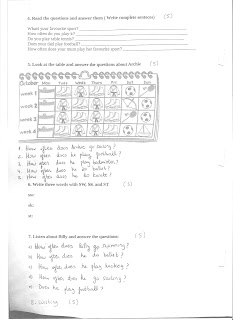 4. Read the questions and answer them ( Write complete sentence) (5)
What's your favourite sport?
How often do you play it?
Do you play table tennis?
Does your dad play football?
How often does your mum play her favourite sport?
5. Look at the table and answer the questions about Archie (5)
October Mon Tues Weds Thurs Fri Sat Sun
week 1
week 2
week 3
week 4
1. How often does Archie go sailing?
2. How often does he play football?
3. How often does he play badminton?
4. How often does he do ballet?
5. How often does he do karate?
6. Write three words with SW, SK and ST (3)
sw:
sk:
st:
7. Listen about Billy and answer the questions (5)
a) How often does Billy go swimming?
b) How often does he do ballet?
c) How often does he play hockey?
d) How often does he go sailing?
e) Does he play football?
8. (5)